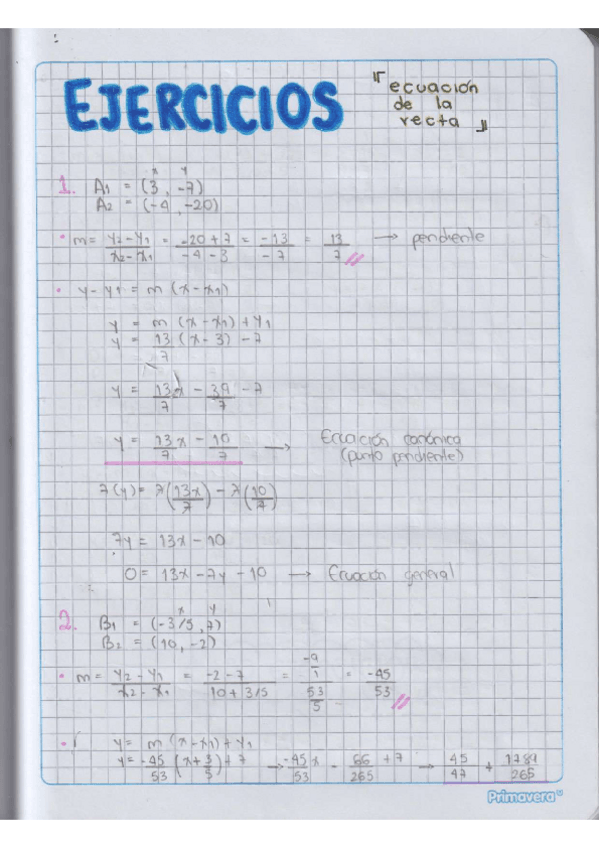 EJERCICIOS
「ecuación
de la
recta」
x y
1. A1 = (3, -7)
A2 = (-4, -20)
• m = y2 - y1 / x2 - x1 = -20 + 7 / -4 - 3 = -13 / -7 = 13 / 7 // → pendiente
• y - y1 = m (x - x1)
y = m (x - x1) + y1
y = 13/7 (x - 3) - 7
y = 13x/7 - 39/7 - 7
y = 13x/7 - 10/7 → Ecuación canónica
(punto pendiente)
7(y) = 7(13x/7) - 7(10/7)
7y = 13x - 10
0 = 13x - 7y - 10 → Ecuación general
x y
2. B1 = (-3/5, 7)
B2 = (10, -2)
• m = y2 - y1 / x2 - x1 = -2 - 7 / 10 + 3/5 = -9/1 / 53/5 = -45 / 53 //
• y = m (x - x1) + y1
y = -45/53 (x + 3/5) + 7 → -45x/53 - /265 + 7 → 45/ + /265
Primavera